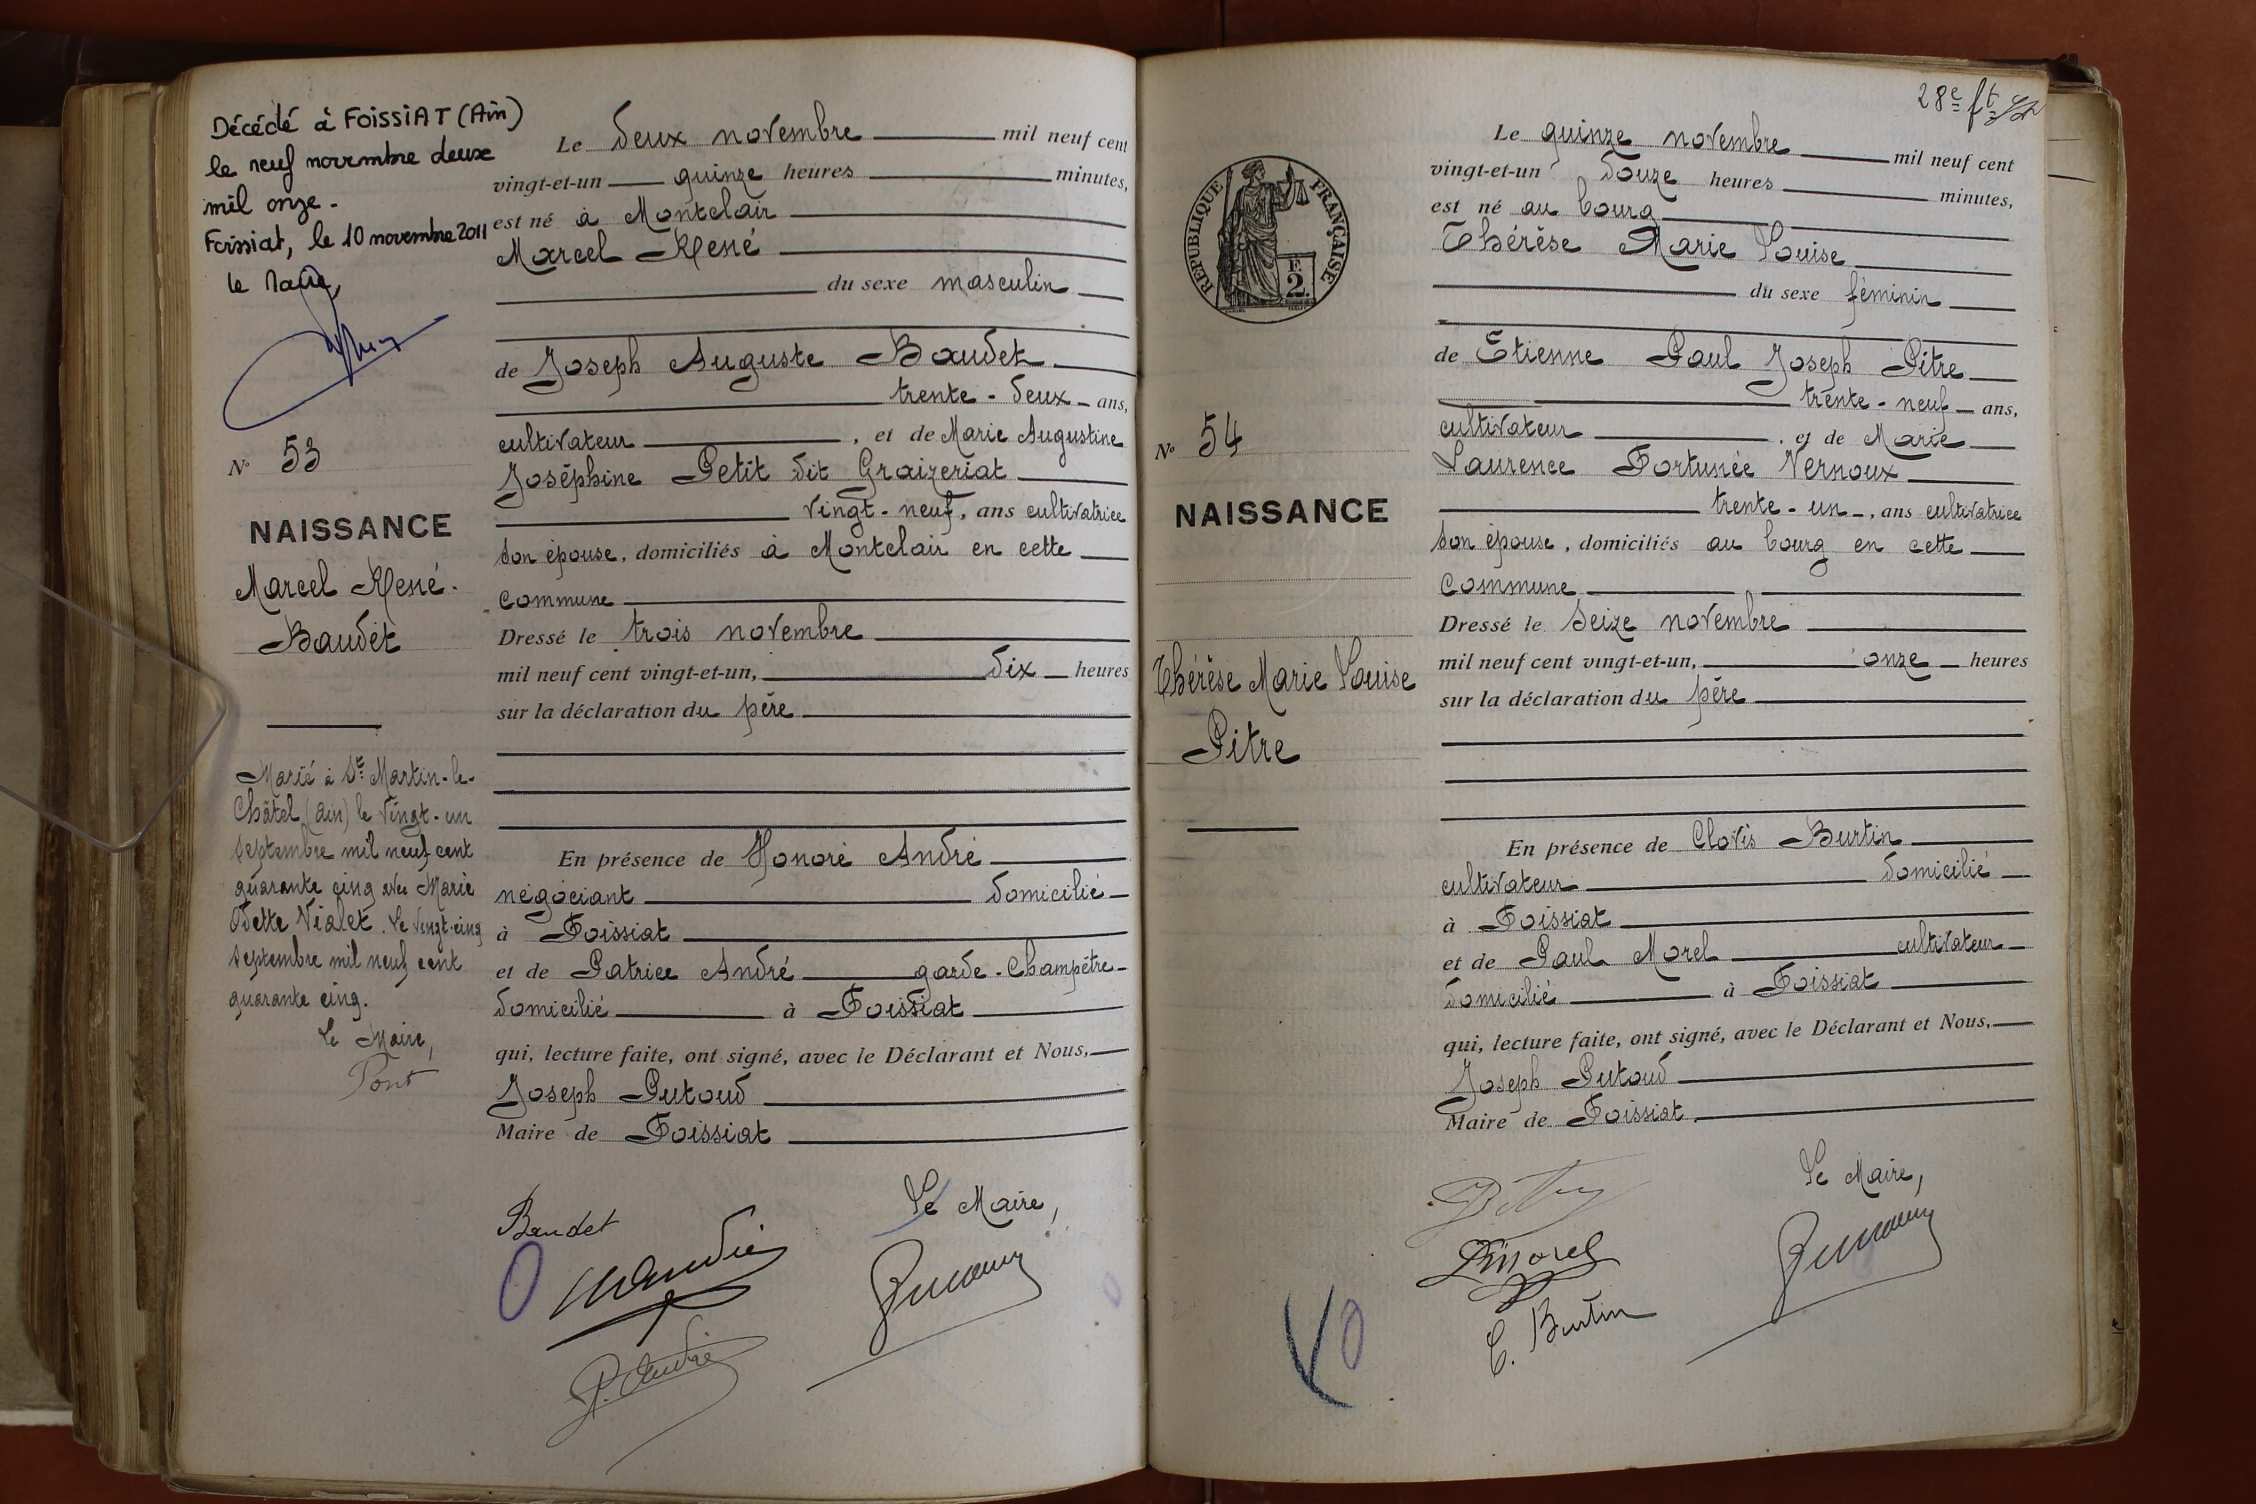 Décédé à FOISSIAT (Ain)
le neuf novembre deux
mil onze.
Foissiat, le 10 novembre 2011
le Maire,
N° 53
NAISSANCE
Marcel René
Baudet
Marié à St Martin-le-
Châtel (Ain) le vingt-un
septembre mil neuf cent
quarante cinq avec Marie
Odette Vialet. Le vingt-cinq
septembre mil neuf cent
quarante cinq.
Le Maire,
Pont
Le deux novembre mil neuf cent
vingt-et-un quinze heures minutes,
est né à Montclair
Marcel René
du sexe masculin
de Joseph Auguste Baudet
trente-deux ans,
cultivateur, et de Marie Augustine
Joséphine Petit dit Graizeriat
vingt-neuf, ans cultivatrice
son épouse, domiciliés à Montclair en cette
commune
Dressé le trois novembre
mil neuf cent vingt-et-un, dix heures
sur la déclaration du père
En présence de Honoré André
négociant domicilié
à Foissiat
et de Patrice André garde-champêtre
domicilié à Foissiat
qui, lecture faite, ont signé, avec le Déclarant et Nous,
Joseph Putoud
Maire de Foissiat
Le Maire,
Baudet
P. André
28e ft
RÉPUBLIQUE FRANÇAISE
F.
2.
N° 54
NAISSANCE
Thérèse Marie Louise
Pitre
Le quinze novembre mil neuf cent
vingt-et-un douze heures minutes,
est né au bourg
Thérèse Marie Louise
du sexe féminin
de Etienne Paul Joseph Pitre
trente-neuf ans,
cultivateur, et de Marie
Laurence Fortunée Vernoux
trente-un, ans cultivatrice
son épouse, domiciliés au bourg en cette
commune
Dressé le seize novembre
mil neuf cent vingt-et-un, onze heures
sur la déclaration du père
En présence de Clovis Burtin
cultivateur domicilié
à Foissiat
et de Paul Morel cultivateur
domicilié à Foissiat
qui, lecture faite, ont signé, avec le Déclarant et Nous,
Joseph Putoud
Maire de Foissiat
Le Maire,
C. Burtin